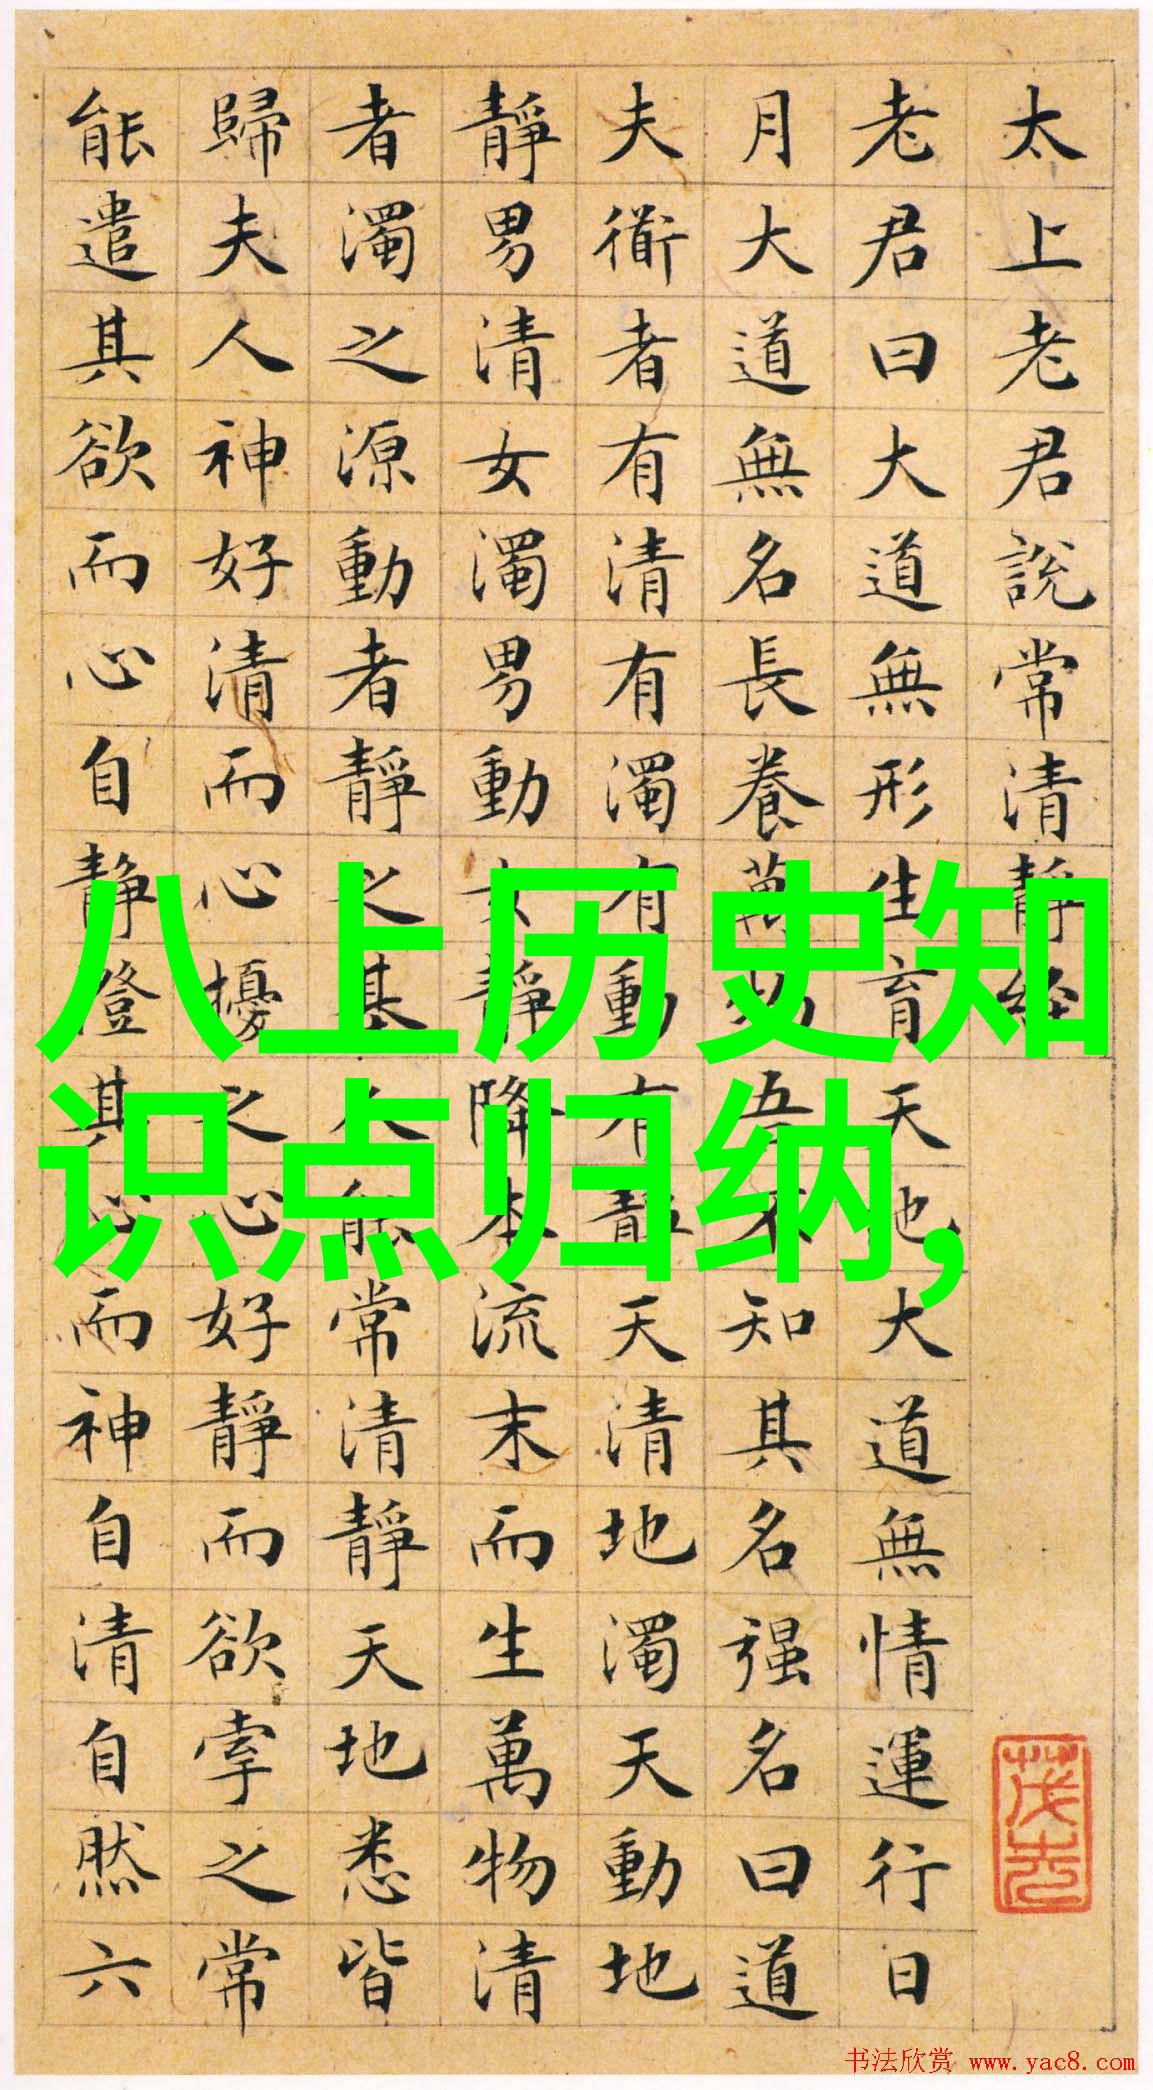 太上老君說常清靜経
老君曰大道無形生育天地大道無情運行日
月大道無名長養萬物吾不知其名强名曰道
夫衜者有清有濁有動有靜天清地濁天動地
靜男清女濁男動女靜降本流末而生萬物清
者濁之源動者靜之基人能常清靜天地悉皆
歸夫人神好清而心擾之心好靜而欲牽之常
能遣其欲而心自靜澄其心而神自清自然六
八上历史知
识点归纳,
书法欣赏 www.yac8.com